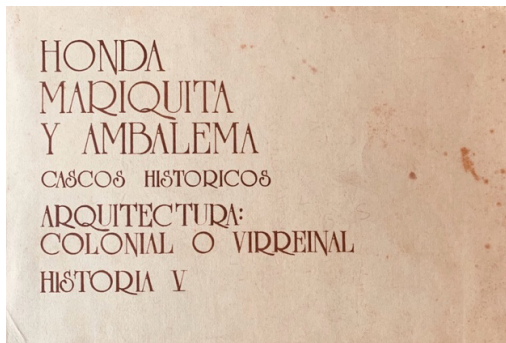 HONDA
MARIQUITA
Y AMBALEMA
CASCOS HISTORICOS
ARQUITECTURA:
COLONIAL O VIRREINAL
HISTORIA V